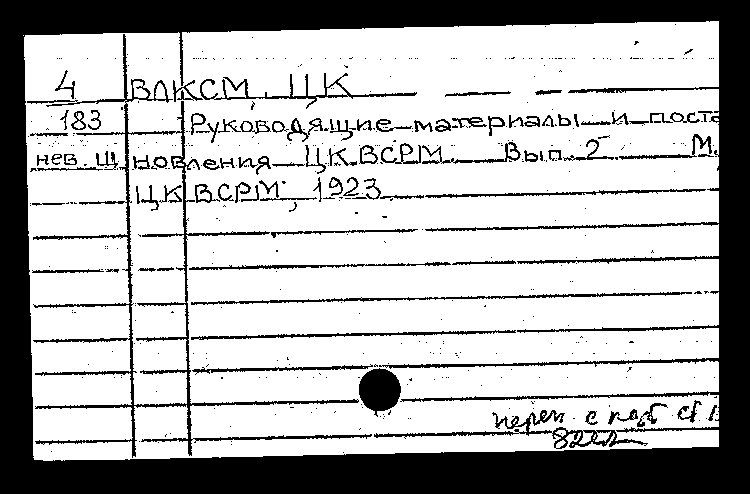 4 ВЛКСМ. ЦК
183 Руководящие материалы и поста
нев. Ш новления ЦК ВСРМ. Вып. 2 М.
ЦК ВСРМ, 1923
перен с